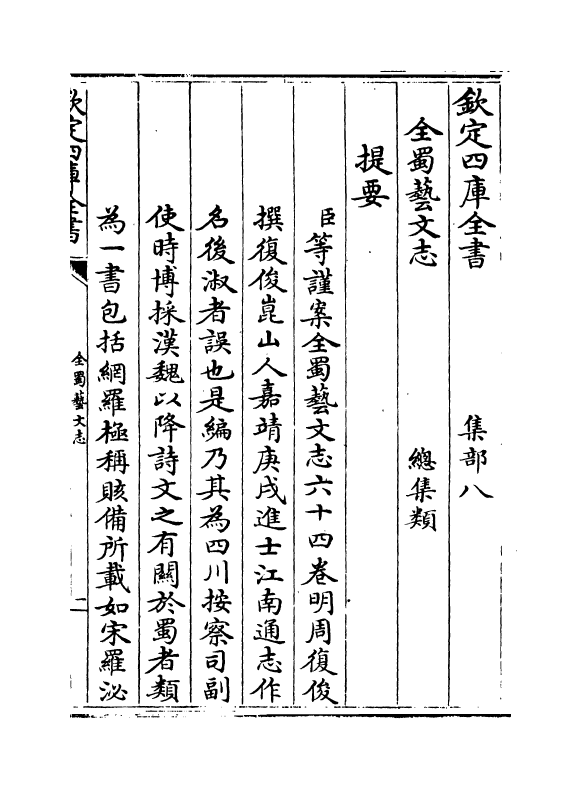 欽定四庫全書　集部八
全蜀藝文志　總集類
提要
臣等謹案全蜀藝文志六十四卷明周復俊
撰復俊崑山人嘉靖庚戌進士江南通志作
名後淑者誤也是編乃其為四川按察司副
使時博採漢魏以降詩文之有關於蜀者類
為一書包括網羅極稱賅備所載如宋羅泌
欽定四庫全書
全蜀藝文志
一